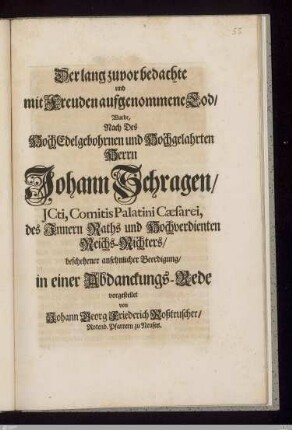 Der lang zuvor bedachte
und
mit Freuden aufgenommene Tod/
Wurde,
Nach Des
HochEdelgebohrnen und Hochgelahrten
Herrn
Johann Schragen/
JCti, Comitis Palatini Cæsarei,
des Innern Raths und Hochverdienten
Reichs-Richters/
beschehener ansehnlicher Beerdigung/
in einer Abdanckungs-Rede
vorgestellet
von
Johann Georg Friederich
Notend. Pfarrern zu Neuses.